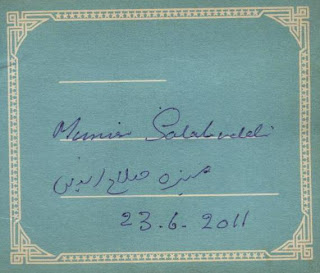 Munir Salahuddin
منیزہ صلاح الدین
23.6.2011